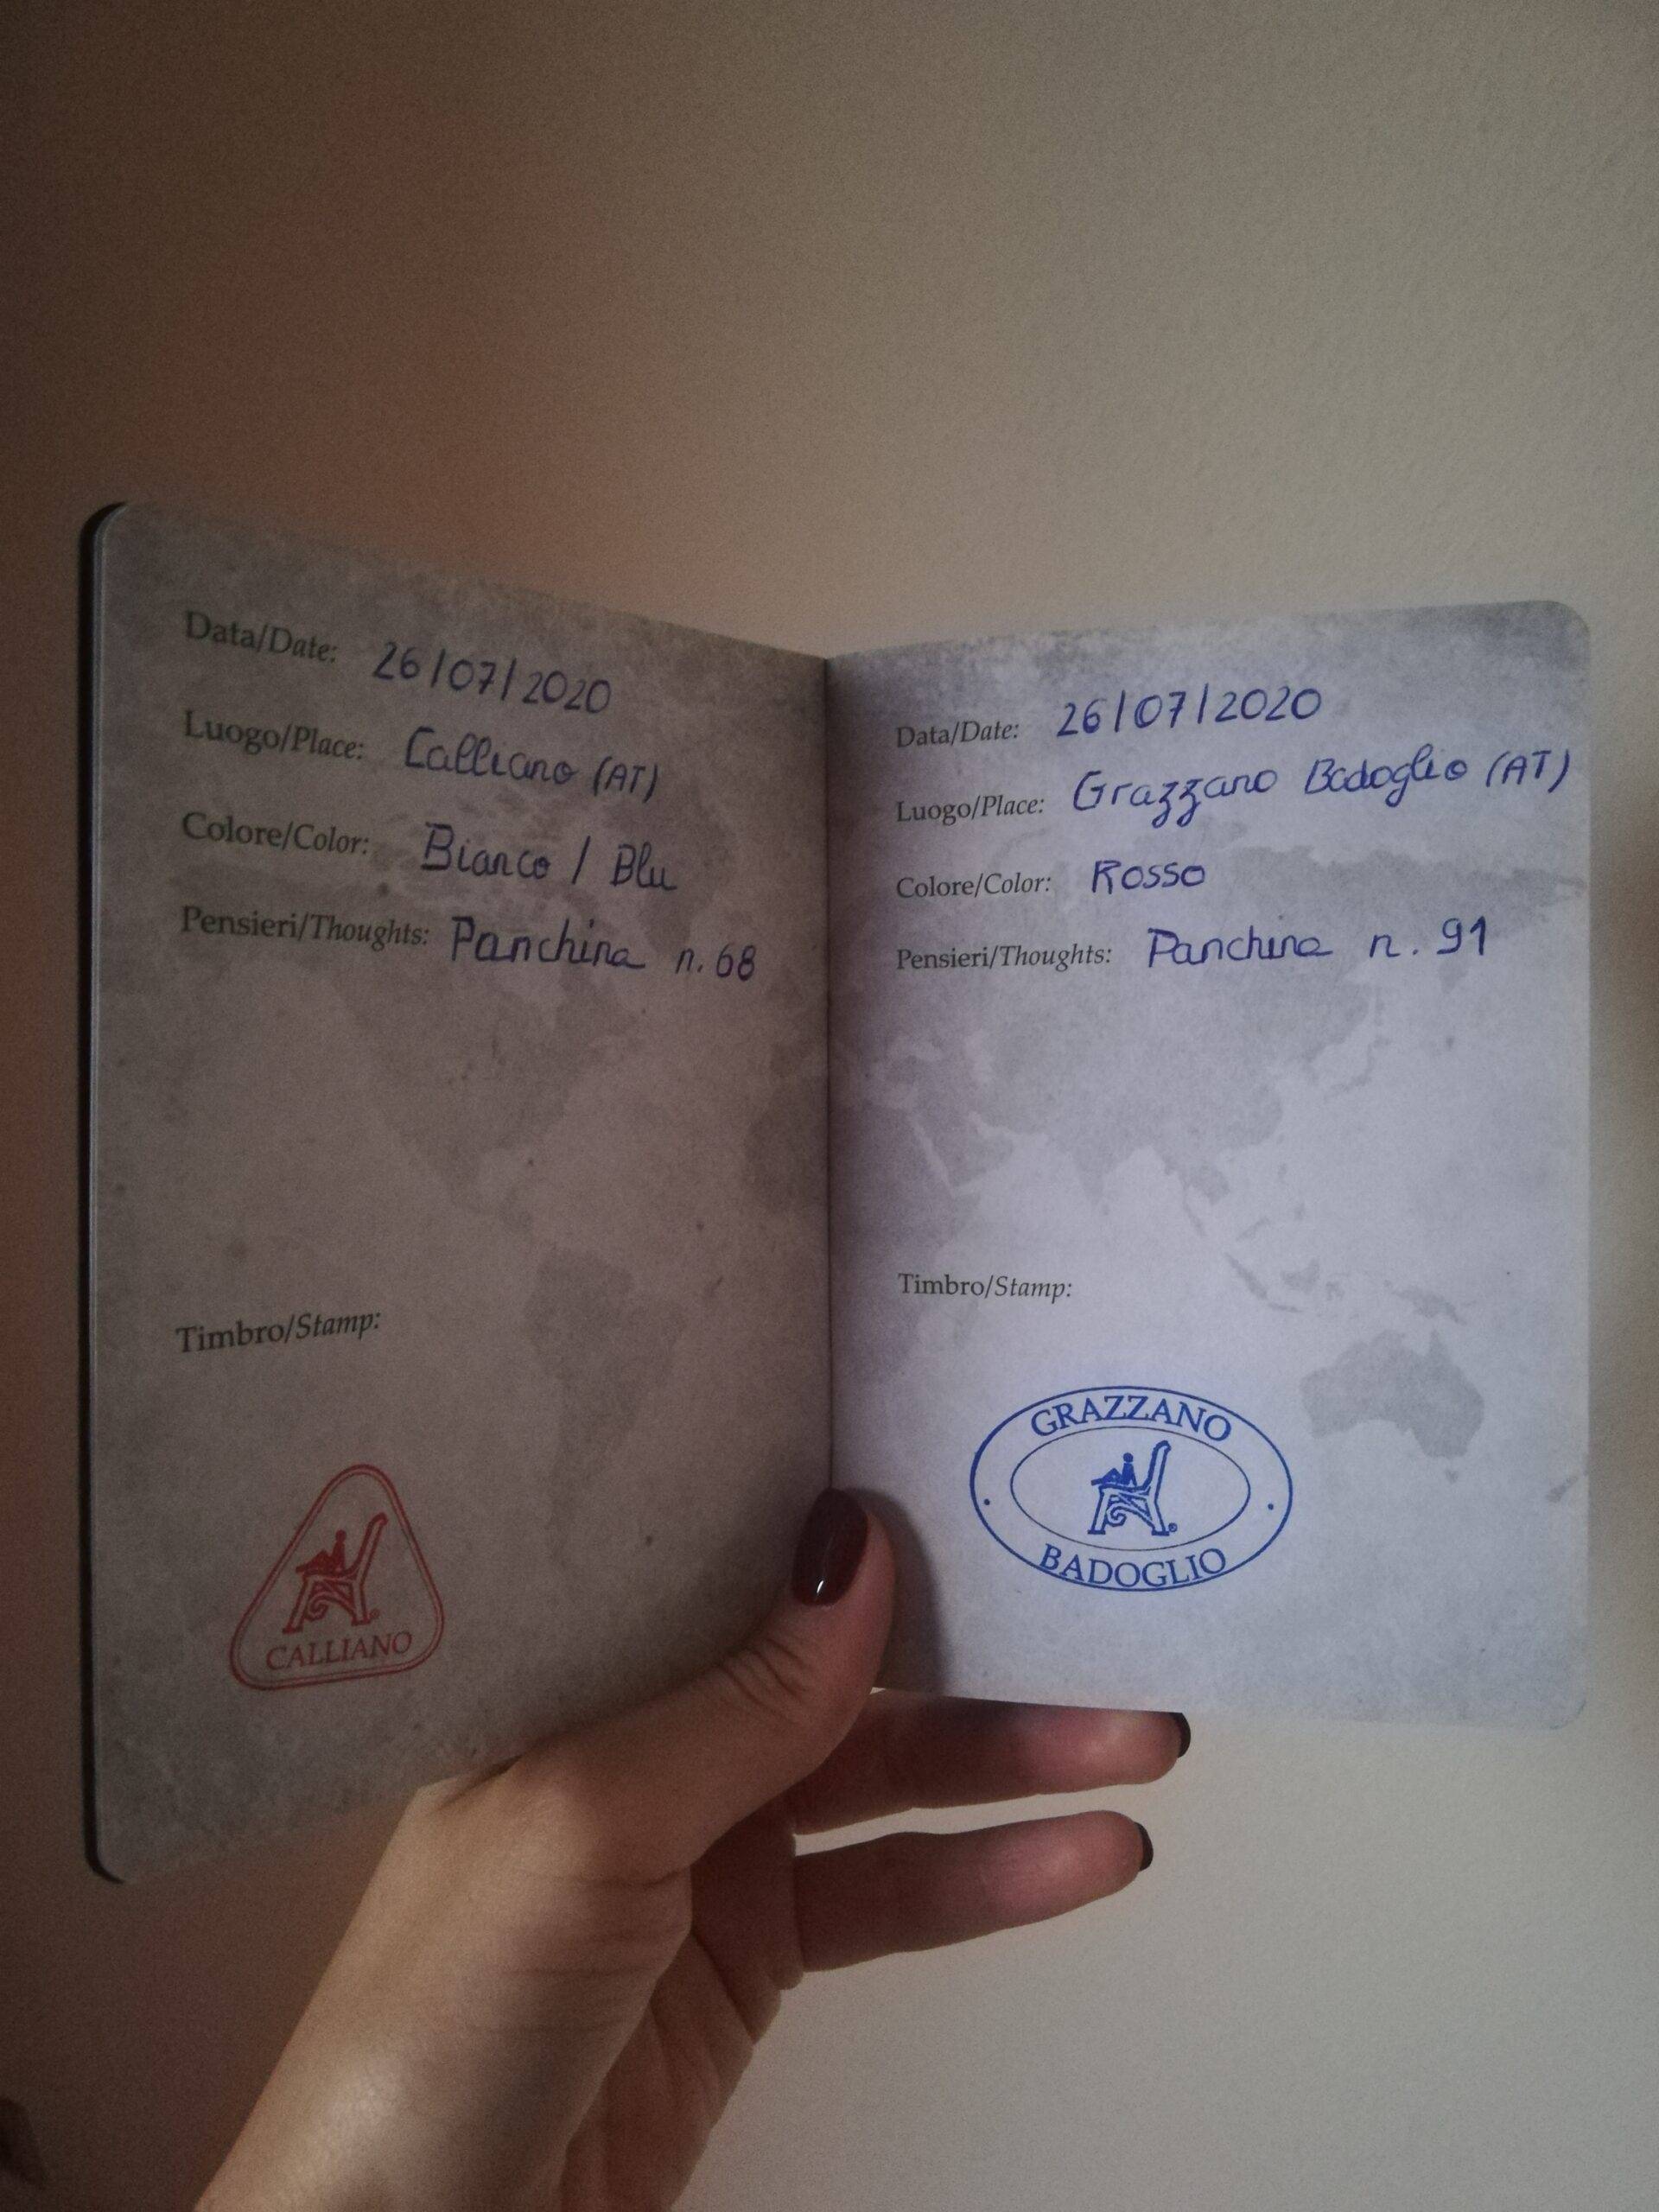 Data/Date: 26/07/2020
Luogo/Place: Calliano (AT)
Colore/Color: Bianco / Blu
Pensieri/Thoughts: Panchina n. 68
Timbro/Stamp:
CALLIANO
Data/Date: 26/07/2020
Luogo/Place: Grazzano Badoglio (AT)
Colore/Color: Rosso
Pensieri/Thoughts: Panchina n. 91
Timbro/Stamp:
GRAZZANO
BADOGLIO